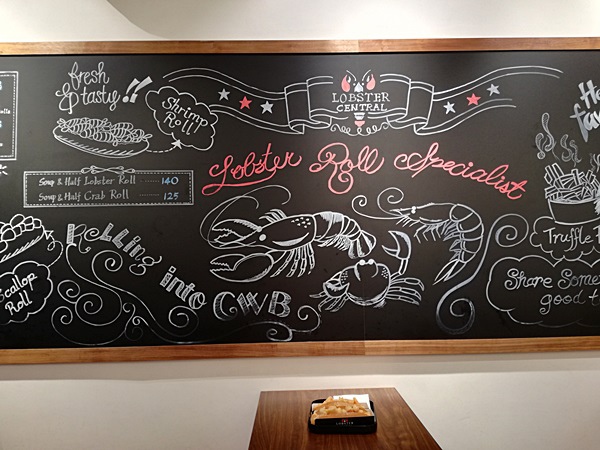 fresh
& tasty!!
Shrimp
Roll
LOBSTER
CENTRAL
Lobster Roll Specialist
Soup & Half Lobster Roll ...... 140
Soup & Half Crab Roll ...... 125
Scallop
Roll
Rolling into CWB
Truffle
Share Some
good t